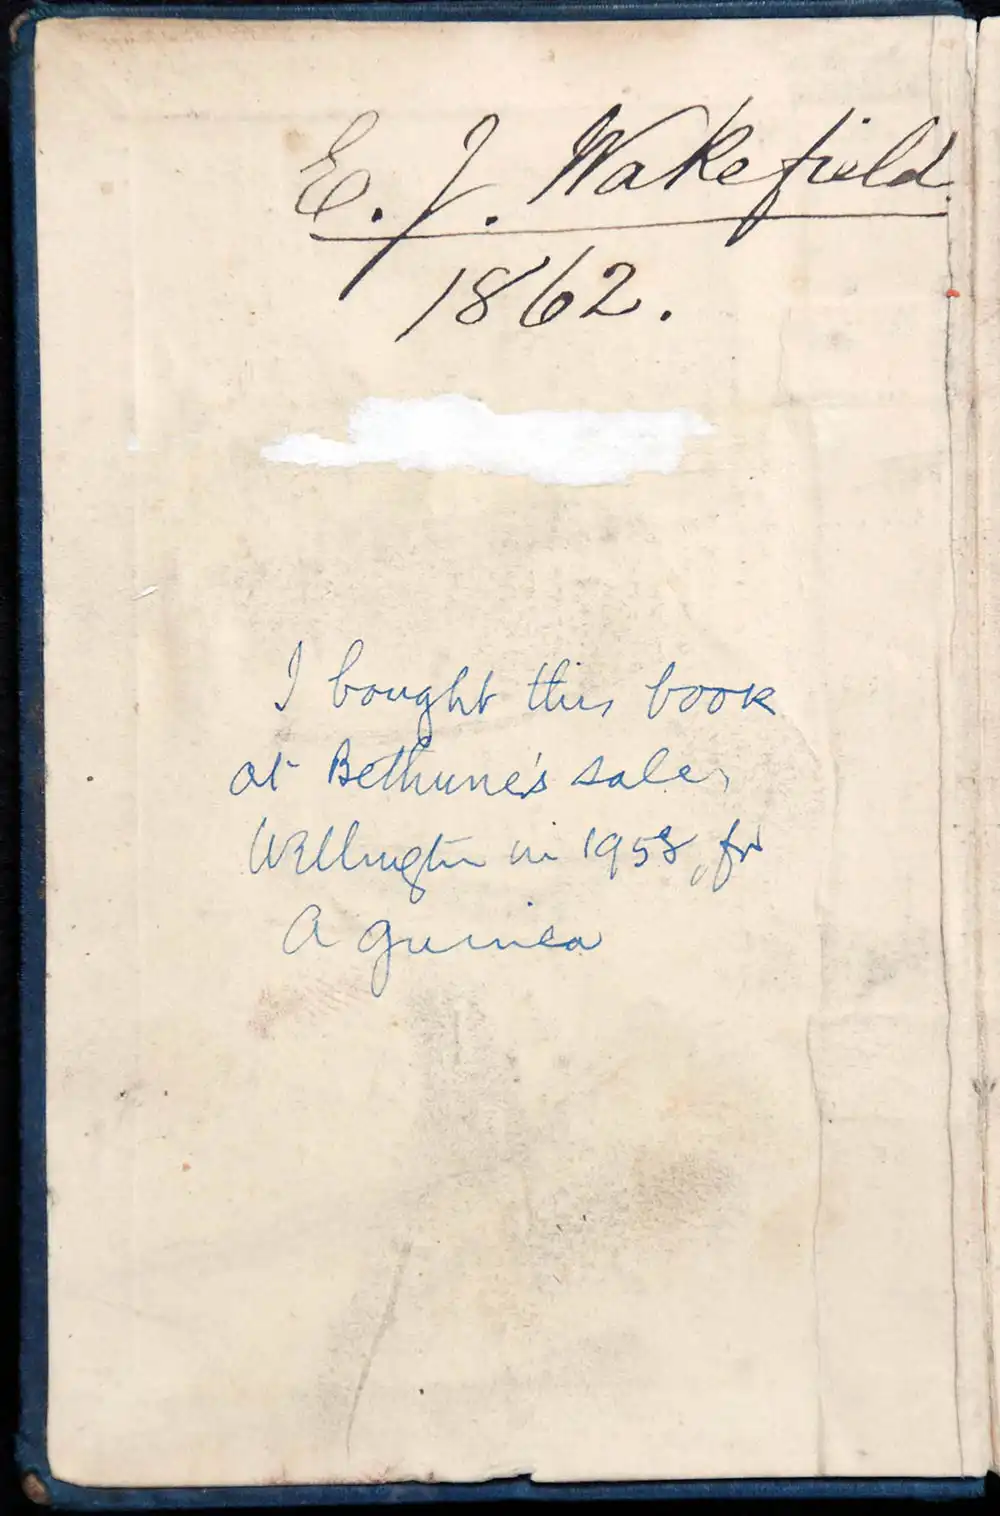 E. J. Wakefield.
1862.
I bought this book
at Bethune's sale,
Wellington in 1958, for
a guinea